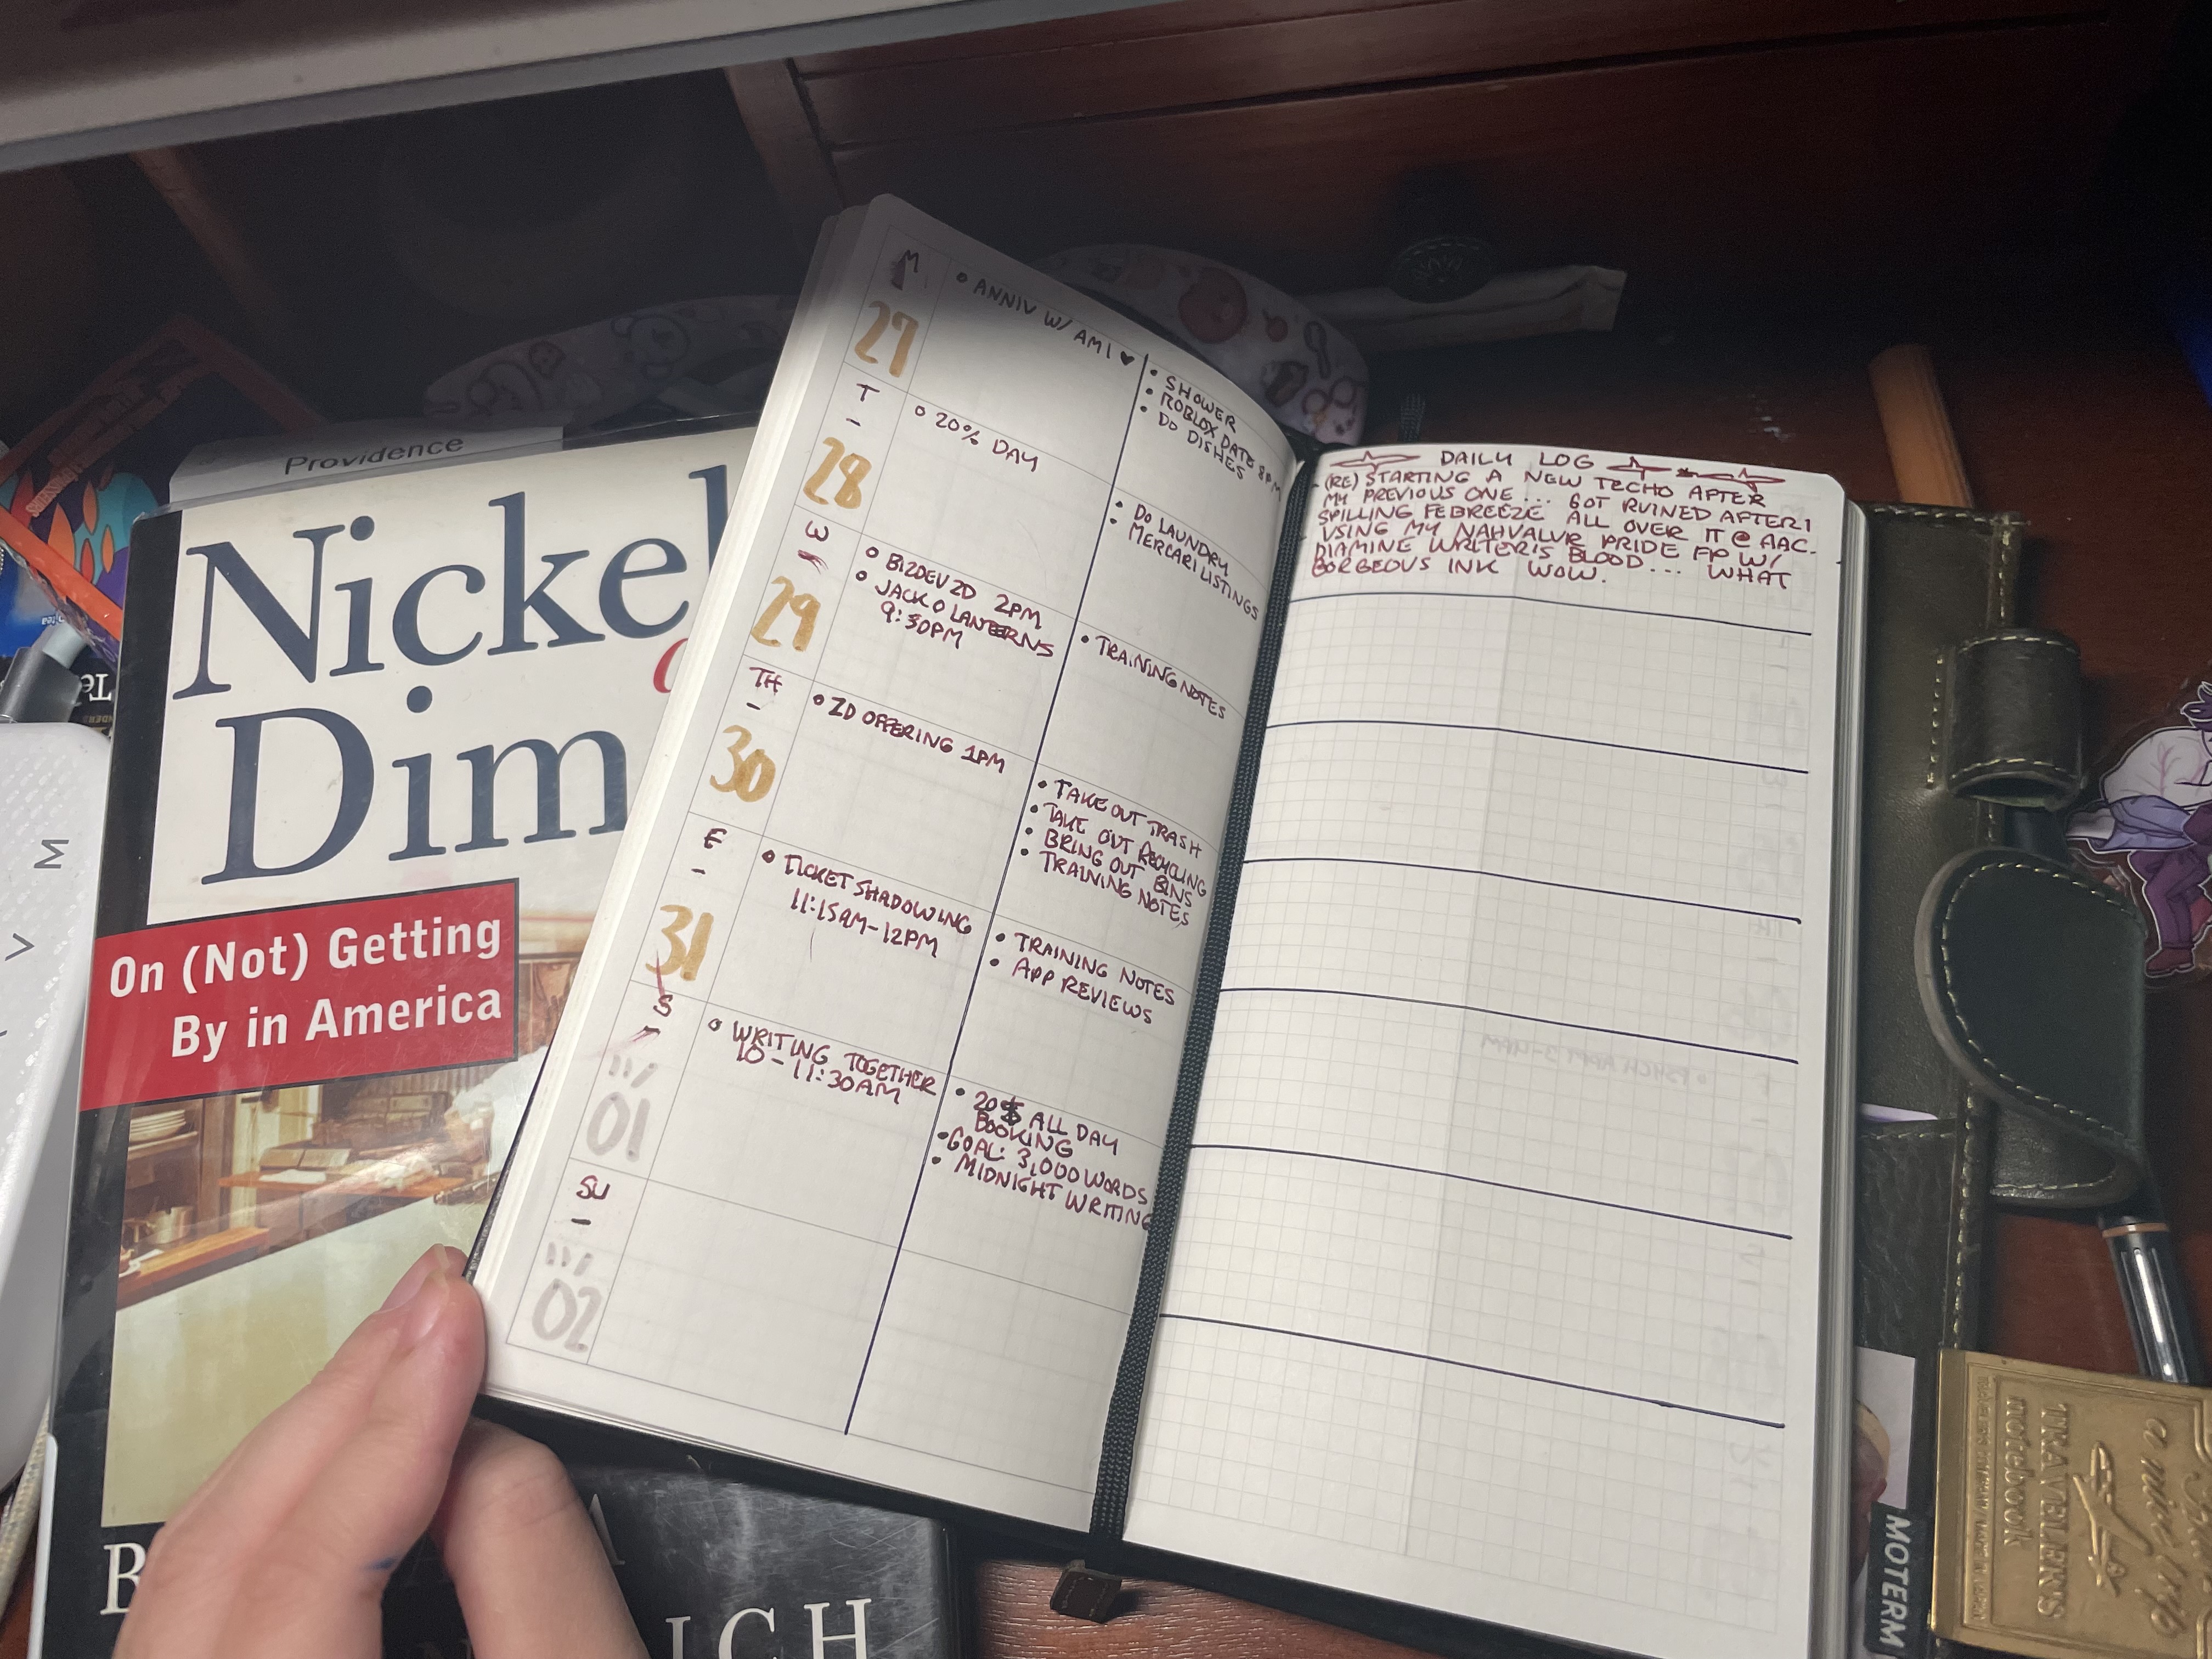 Providence
Nickel
Dim
On (Not) Getting
By in America
B
ICH
M
V
M
27
○ ANNIV W/ AMI ♥
• SHOWER
• ROBLOX DATE 8PM
• DO DISHES
T
-
28
○ 20% DAY
• DO LAUNDRY
• MERCARI LISTINGS
W
-
29
○ BIZDEV ZD 2PM
○ JACK O LANTERNS
9:30PM
• TRAINING NOTES
TH
-
30
○ ZD OFFERING 1PM
• TAKE OUT TRASH
• TAKE OUT RECYCLING
• BRING OUT BINS
• TRAINING NOTES
F
-
31
○ TICKET SHADOWING
11:15AM-12PM
• TRAINING NOTES
• APP REVIEWS
S
-
11/
01
○ WRITING TOGETHER
10-11:30AM
• 20$ ALL DAY
BOOKING
• GOAL: 3,000 WORDS
• MIDNIGHT WRITING
SU
-
11/
02
DAILY LOG
- (RE) STARTING A NEW TECHO AFTER
MY PREVIOUS ONE... GOT RUINED AFTER I
SPILLING FEBREEZE ALL OVER IT @ AAC.
- USING MY NAHVALUR PRIDE FP W/
DIAMINE WRITER'S BLOOD... WHAT
GORGEOUS INK WOW.
○ PSYCH APPT 3-4PM
MOTERM
TRAVELER'S
notebook
a nice trip